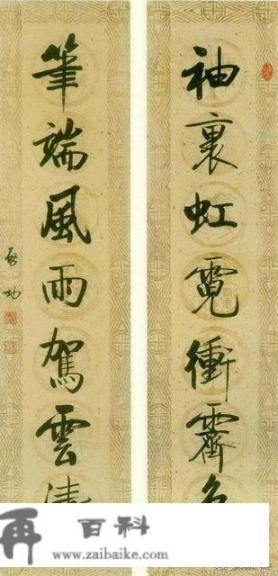 袖裏虹霓衝霽
筆端風雨駕雲
启功
再百科
www.zaibaike.com